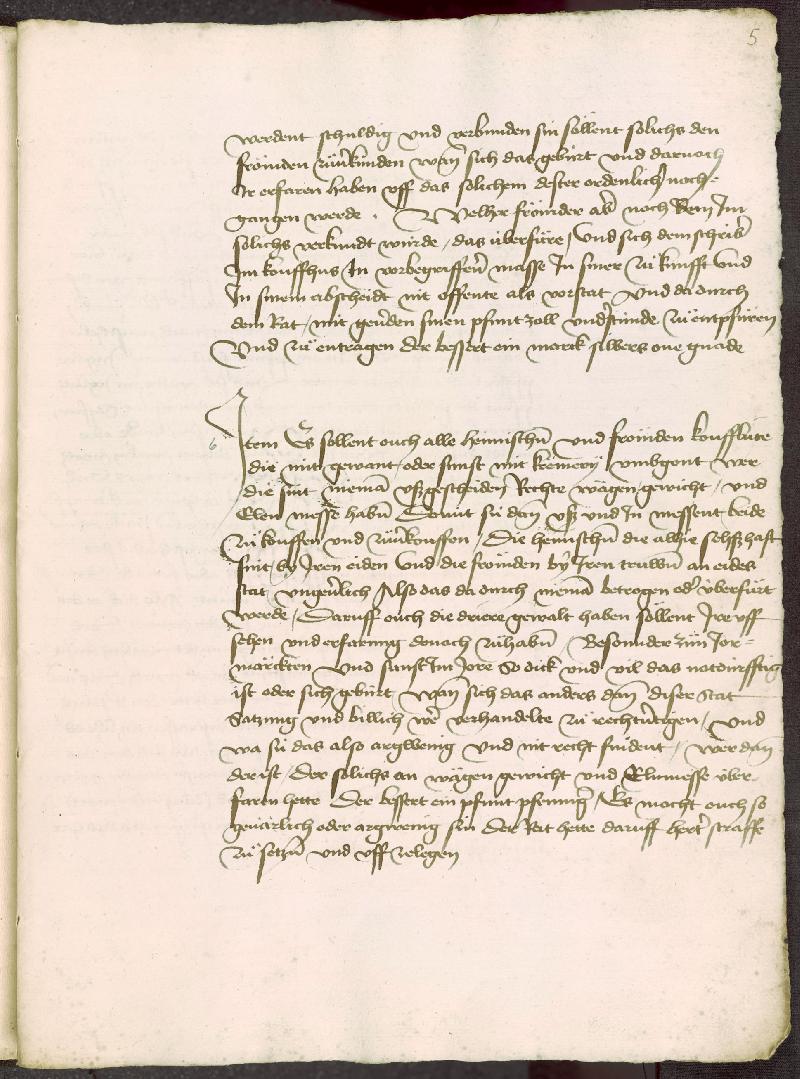 5
werdent schuldig vnd verbunden sin söllent solichs den
frömden zůuerkünden wañ sich das gebürt vnd darnoch
Ir erfaren haben vff das solichem dester ordenlich noch-
gangen werde . Welher frömder ab noch dem Im
solichs verkundt würde / das überfüre / Vnd sich dem schrib
Im kouffhus In vorbegriffen masse In siner zůkunfft Vnd
In sinem abscheidt nit offente als vorstat Vnd dadurch
dem Rat / mit geuerden sinen pfunt zoll vnderstünde zů entpfüren
Vnd zů entragen der bessert ein marck silbers one gnade
6
Item Es sollent ouch alle heimischñ vnd frömden koufflüte
die mit gewant / oder sunst mit kremery vmbgont wer
die sint niemã vßgescheiden Rechte wågen gewicht / vnd
Elen messe habñ Domit sü dañ vß vnd In messent beide
Zů kouffen vnd zůuerkouffen / Die heimischñ die alhie seßhaft
sint by Iren eiden Vnd die frömden by Iren truwen an eides
stat vngeuerlich Also das dadurch niemã betrogen od überfürt
werde / Daruff ouch die driere gewalt haben söllent Ire vff
sehen vnd erfarung donoch zůhabñ / Besonnder zün Jor-
märckten Vnd sunst Im Jore So dick vnd vil das notdurfftig
ist oder sich gebürt / wañ sich das anders dañ diser Stat
Satzung vnd billich wer verhandelte zů rechtuertigen / Vnd
wa sü das also argwenig vnd nit recht findent / wer dañ
der ist / der solichs an wågen gewicht vnd Elnmesse über-
faren hette Der bessert ein pfunt pfenning / Es mocht ouch so
geuårlich oder argwenig sin Der Rat hette daruff hert straffe
zů setzñ vnd vff zelegen